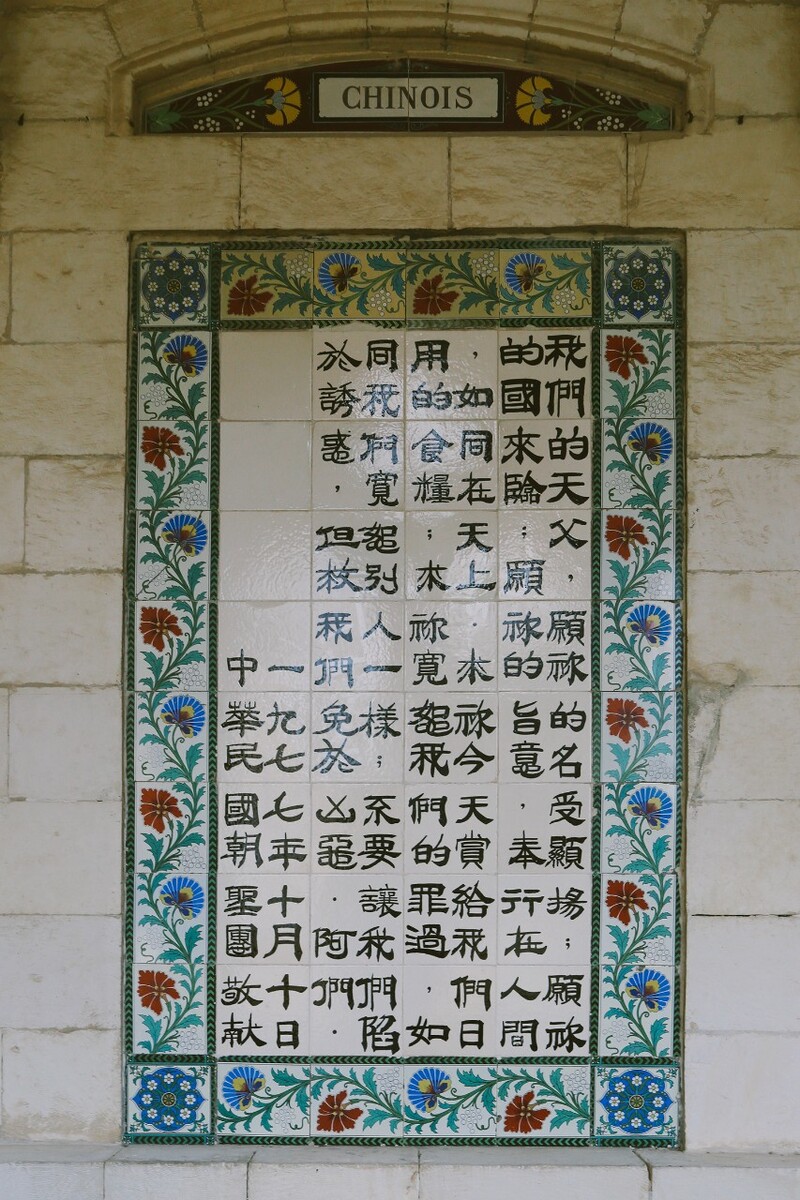 CHINOIS
我們的天父，願祢的名受顯揚；願祢
的國來臨；願祢的旨意，奉行在人間
，如同在天上．求祢今天賞給我們日
用的食糧；求祢寬恕我們的罪過，如
同我們寬恕別人一樣；不要讓我們陷
於誘惑，但救我們免於凶惡．阿們．
一九七七年十月十日
中華民國朝聖團敬献